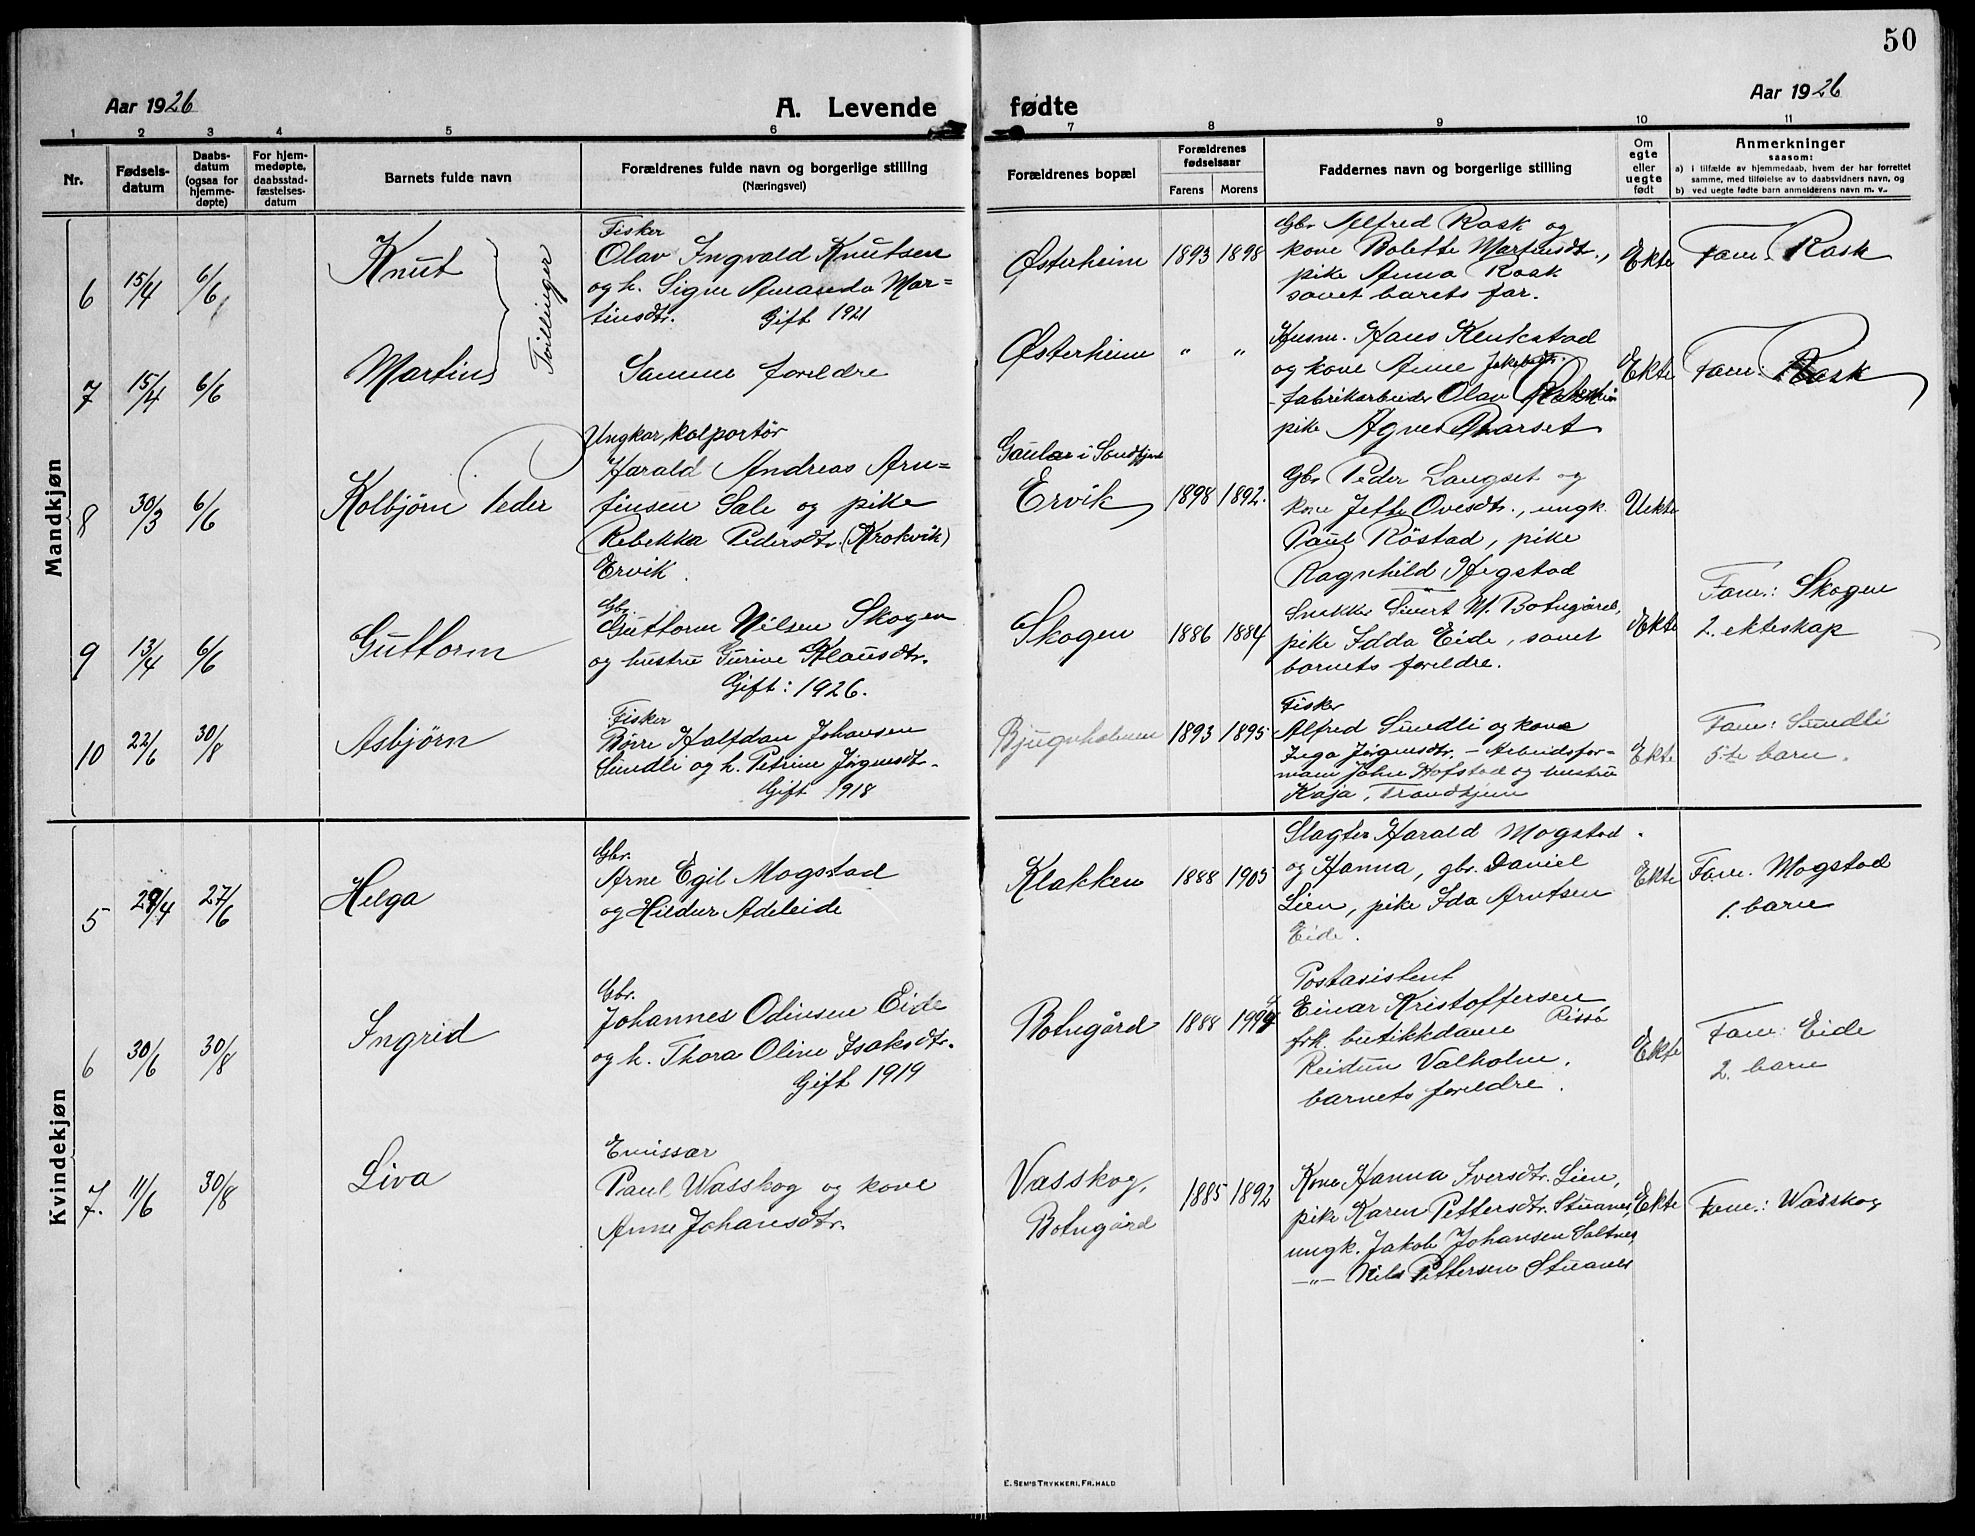 50
Aar 1926
A. Levende fødte
Aar 1926
1 2 3 4 5 6 7 8 9 10 11
Nr.
Fødsels-
datum
Daabs-
datum
(ogsaa for
hjemme-
døpte)
For hjem-
medøpte,
daabsstad-
fæstelses-
datum
Barnets fulde navn
Forældrenes fulde navn og borgerlige stilling
(Næringsvei)
Forældrenes bopæl
Forældrenes
fødselsaar
Farens Morens
Faddernes navn og borgerlige stilling
Om
egte
eller
uegte
født
Anmerkninger
saasom:
a) i tilfælde av hjemmedaab, hvem der har forrettet
samme, med tilføielse av to daabsvidners navn, og
b) ved uegte fødte barn anmelderens navn m. v.
Mandkjøn
6 15/4 6/6
Knut
Tvillinger
Fisker
Olav Ingvald Knutsen
og h. Signe Amanda Mar=
tinsdtr. Gift 1921
Østerheim 1893 1898
Gbr. Alfred Rask og
kone Bolette Martinsdtr.,
pike Anna Rask
samt barets far.
Ekte
Fam. Rask
7 15/4 6/6
Martin
Samme foreldre
Østerheim " "
Husm. Hans
og kone Anne Jakobsdtr.
- fabrikarbeider Olav
pike Agnes
Ekte
Fam. Rask
8 30/3 6/6
Kolbjørn Peder
Ungkar, kolportør
Harald Andreas Arn=
finsen Sale og pike
Rebekka Pedersdtr. (Krokvik)
Ervik.
Gaular i Sundfjord
Ervik 1898 1892.
Gbr. Peder Langset og
kone Jette Ovesdtr., ungk.
Paul Röstad, pike
Ragnhild Hegstad
Uekte
9 13/4 6/6
Guttorm
Gbr.
Guttorm Nilsen Skogen
og hustru Gurine Klausdtr.
Gift: 1926.
Skogen 1886 1884
Snekker Sivert M. Botngård,
pike Edda Eide, samt
barnets foreldre.
Ekte
Fam.: Skogen
2. ekteskap
10 22/6 30/8
Asbjørn
Fisker
Børre Halfdan Johansen
Sundli og h. Petrine Jörgensdtr.
Gift 1918
Bjugnholmen 1893 1895
Fisker
Alfred Sundli og kone
Inga Jörgensdtr. - Arbeidsfor-
mann John Hofstad og hustru
Kaja, Trondhjem
Ekte
Fam: Sundli
5te barn.
Kvindekjøn
5 29/4 27/6
Helga
Gbr.
Arne Egil Mogstad
og Hildur Adeleide
Klakken 1888 1905
Slagter Harald Mogstad.
og Hanna, gbr. Daniel
Lien, pike Ida Arntsen
Eide.
Ekte
Fam. Mogstad
1. barn
6 30/6 30/8
Ingrid
Gbr.
Johannes Odinsen Eide
og h. Thora Oline Isaksdtr.
Gift 1919
Botngård 1888
Postasistent
Einar Kristoffersen
frk. butikkdame Rissa
Reidun Valholm.
barnets foreldre.
Ekte
Fam: Eide
2. barn
7. 11/6 30/8
Liva
Emissær
Paul Wasskog og kone
Anne Johansdtr.
Vasskog,
Botngård
1885 1892
Kone Hanna Iversdtr. Lien,
pike Karen Pettersdtr. Stuanes,
ungk. Jakob Johansen Saltnes,
—"— Nils Pettersen Stuanes
Ekte
Fam.: Wasskog
E. SEM'S TRYKKERI, FR.HALD